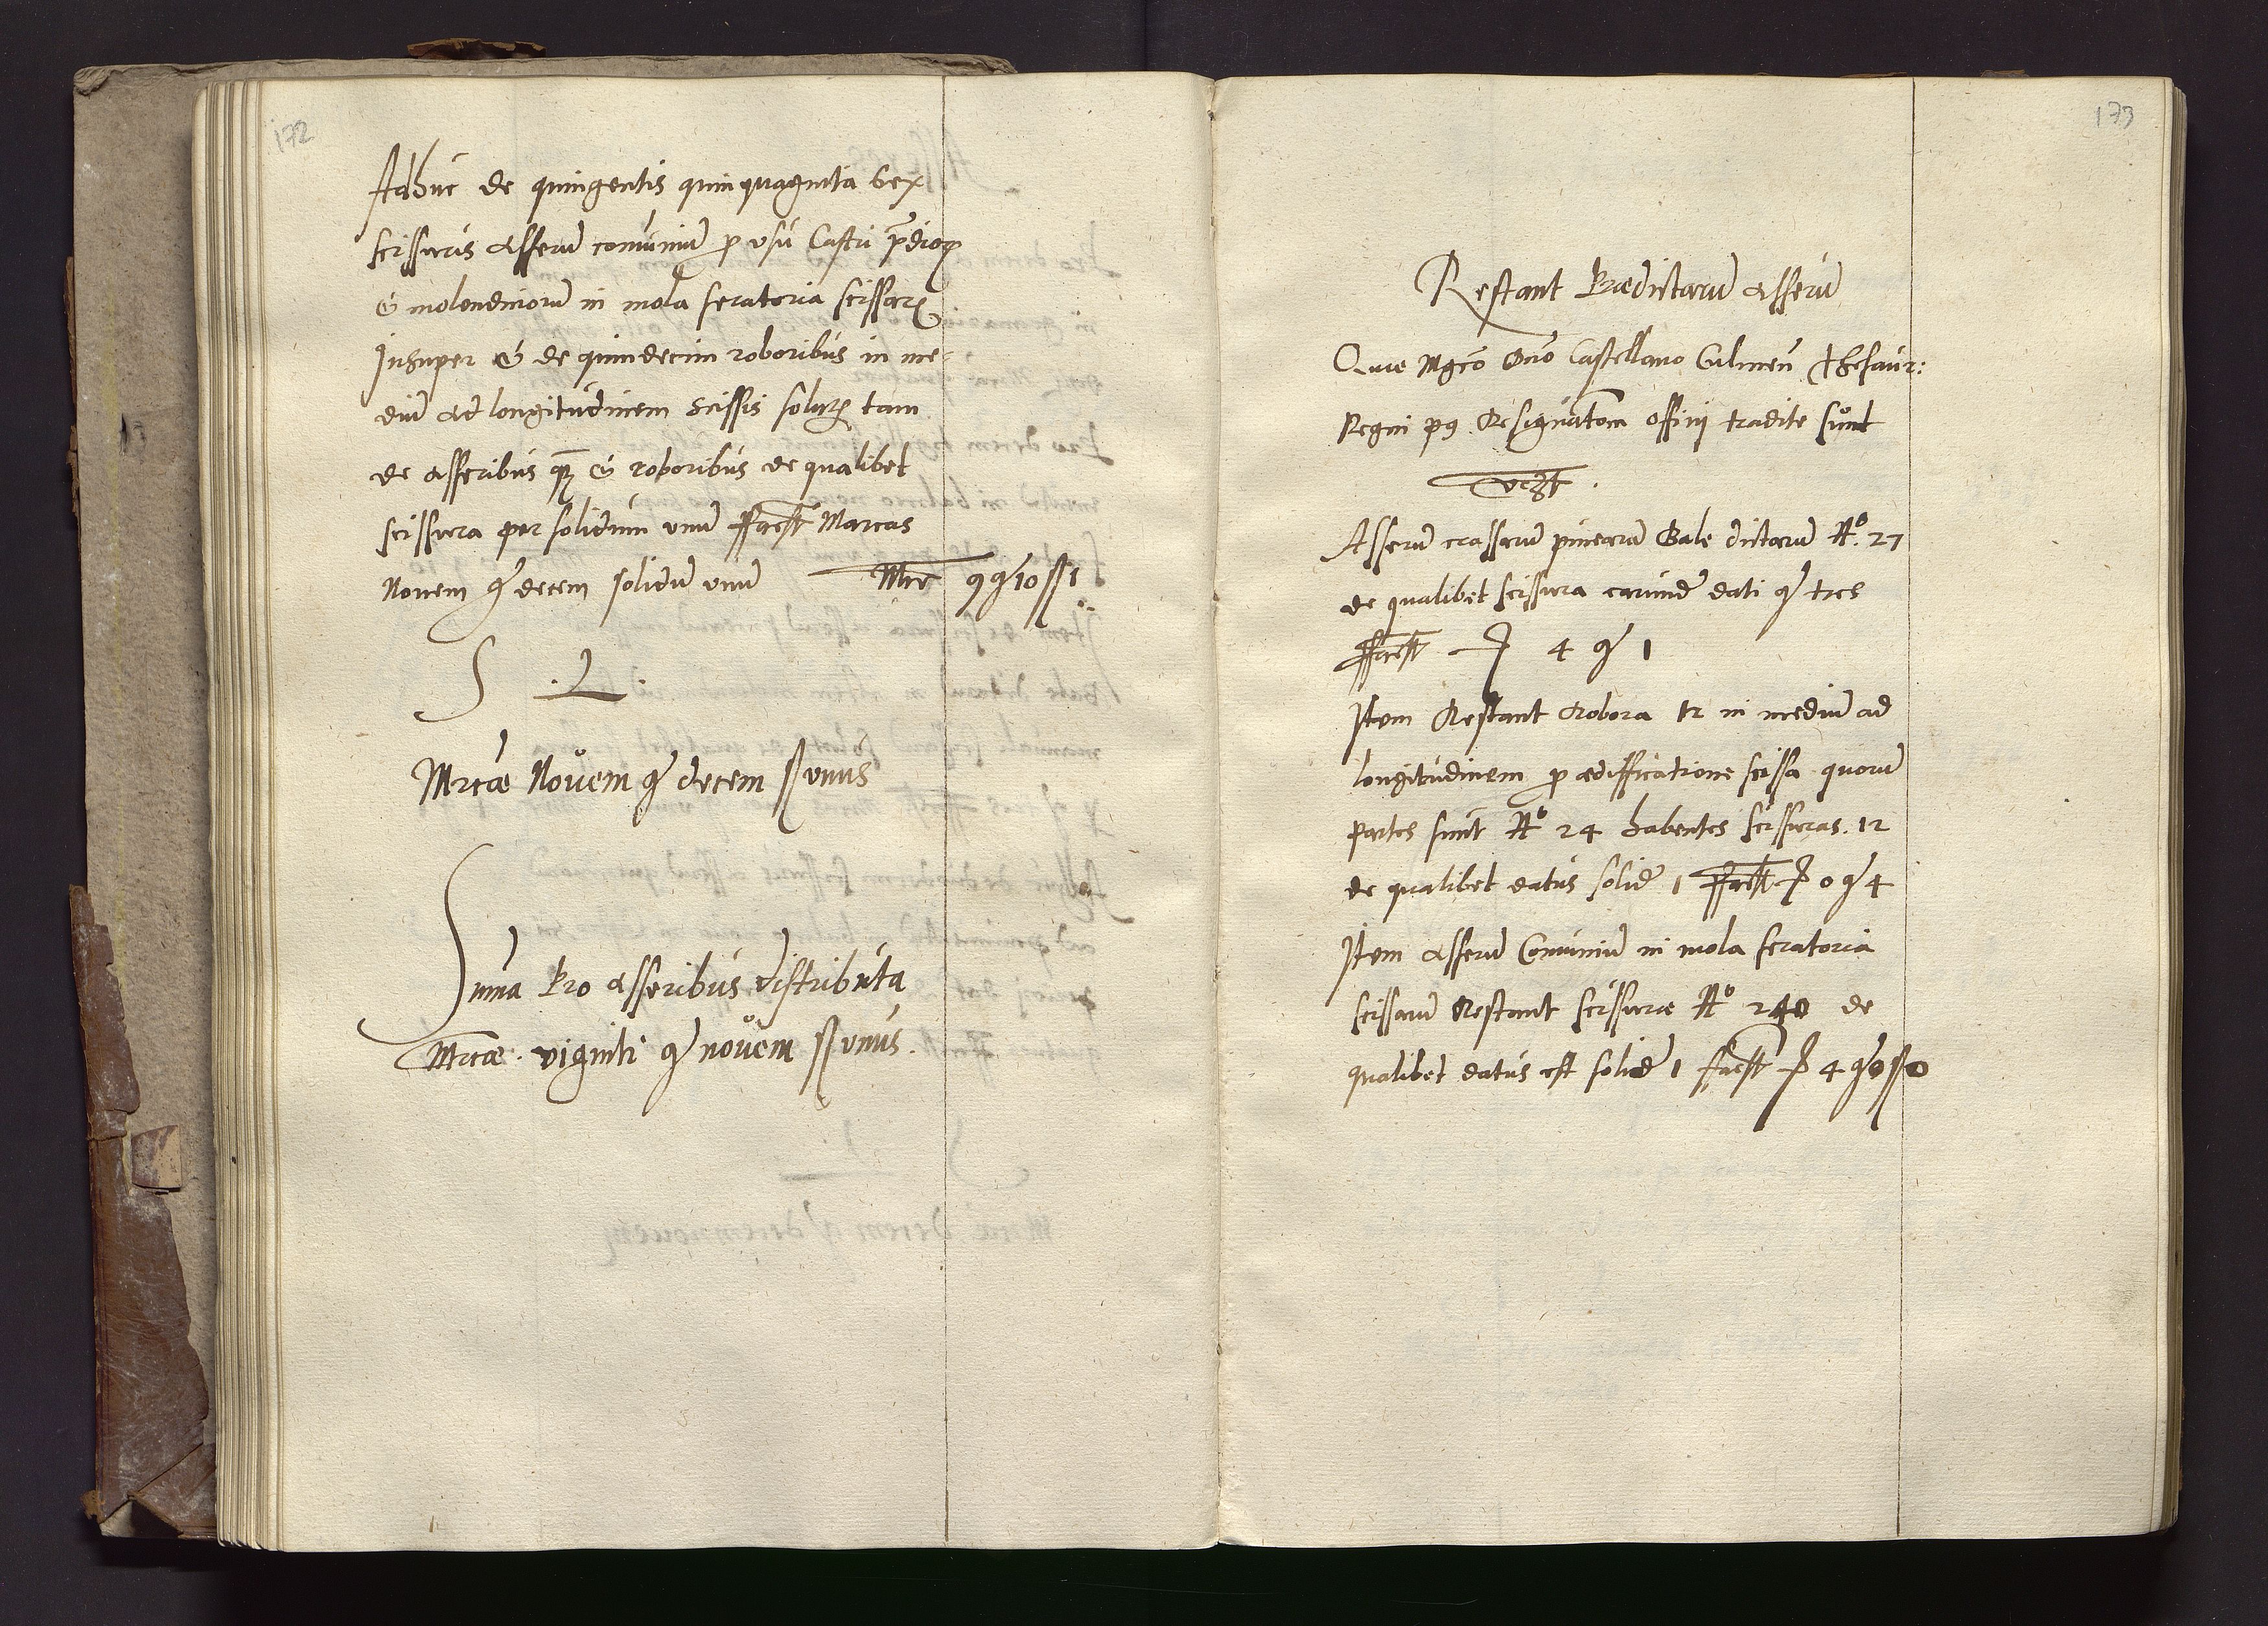 172
Adhuc de quingentis quinquaginta sex
scissuris asserũ comuniũ p usu Castri p̃dior
& molendinorũ in mola seratoria scissar
Insuper & de quindecim roboribus in me-
diũ ad longitudinem scissis solut tam
de asseribus qz & roboribus de qualibet
scissura per solidum unũ ffacit Marcas
Nouem g decem solidũ unũ Mrc 9 g 10 ss 1
S L
Mrcæ Nouem g decem ss unus
Suma Pro asseribus distributa
Mrcæ viginti g nouem ss unus.
173
Restant Prædictarũ asserũ
Quæ Mgco Dno Castellano Culmeñ Thesaur:
Regni p9 Resignatom offitij tradite sunt
vczt.
Asserũ crassarũ pinearũ Bale dictarũ No. 27
de qualibet scissura earund dati g tres
ffacit 4 g 1
Item Restant Robora 12 in mediũ ad
longitudinem p ædifficatione scissa quorũ
partes sunt No 24 habentes scissuras. 12
de qualibet datus solid 1 ffacit 0 g 4
Item asserũ Comuniũ in mola seratoria
scissarũ Restant scissuræ No 240 de
qualibet datus est solid 1 ffacit 4 g 0 ss 0